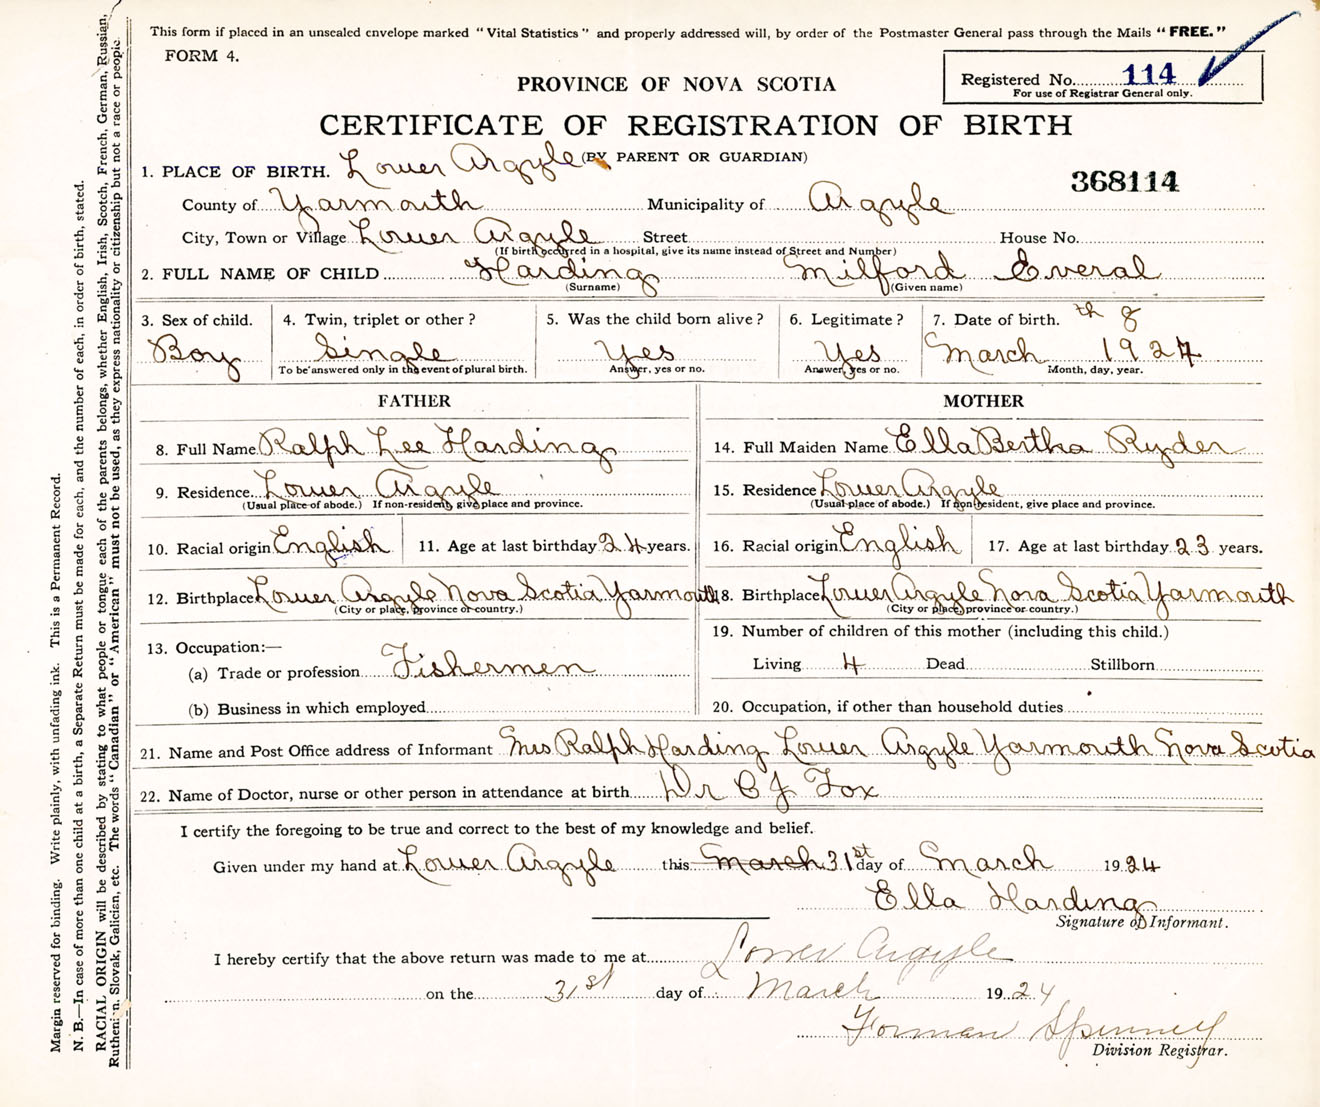 This form if placed in an unsealed envelope marked "Vital Statistics" and properly addressed will, by order of the Postmaster General pass through the Mails "FREE."
FORM 4.
Registered No. 114
For use of Registrar General only.
PROVINCE OF NOVA SCOTIA
CERTIFICATE OF REGISTRATION OF BIRTH
(BY PARENT OR GUARDIAN)
368114
1. PLACE OF BIRTH. Lower Argyle
County of Yarmouth Municipality of Argyle
City, Town or Village Lower Argyle Street House No.
(If birth occurred in a hospital, give its name instead of Street and Number)
2. FULL NAME OF CHILD Harding Milford Everal
(Surname) (Given name)
3. Sex of child. 4. Twin, triplet or other? 5. Was the child born alive? 6. Legitimate? 7. Date of birth. th 8
Boy Single Yes Yes March 1924
To be answered only in the event of plural birth. Answer, yes or no. Answer, yes or no. Month, day, year.
FATHER MOTHER
8. Full Name Ralph Lee Harding 14. Full Maiden Name Ella Bertha Ryder
9. Residence Lower Argyle 15. Residence Lower Argyle
(Usual place of abode.) If non-resident, give place and province. (Usual place of abode.) If nonresident, give place and province.
10. Racial origin English 11. Age at last birthday 24 years. 16. Racial origin English 17. Age at last birthday 23 years.
12. Birthplace Lower Argyle Nova Scotia Yarmouth 18. Birthplace Lower Argyle Nova Scotia Yarmouth
(City or place, province or country.) (City or place, province or country.)
13. Occupation:— 19. Number of children of this mother (including this child.)
(a) Trade or profession Fishermen Living 4 Dead Stillborn
(b) Business in which employed 20. Occupation, if other than household duties
21. Name and Post Office address of Informant Mrs Ralph Harding Lower Argyle Yarmouth Nova Scotia
22. Name of Doctor, nurse or other person in attendance at birth Dr C J Fox
I certify the foregoing to be true and correct to the best of my knowledge and belief.
Given under my hand at Lower Argyle this March 31st day of March 1924
Ella Harding
Signature of Informant.
I hereby certify that the above return was made to me at Lower Argyle
on the 31st day of March 1924
Forman Spinney
Division Registrar.
Margin reserved for binding. Write plainly, with unfading ink. This is a Permanent Record.
N. B.—In case of more than one child at a birth, a Separate Return must be made for each, and the number of each, in order of birth, stated.
RACIAL ORIGIN will be described by stating to what people or tongue each of the parents belongs, whether English, Irish, Scotch, French, German, Russian,
Ruthenian, Slovak, Galician, etc. The words "Canadian" or "American" must not be used, as they express nationality or citizenship but not a race or people.